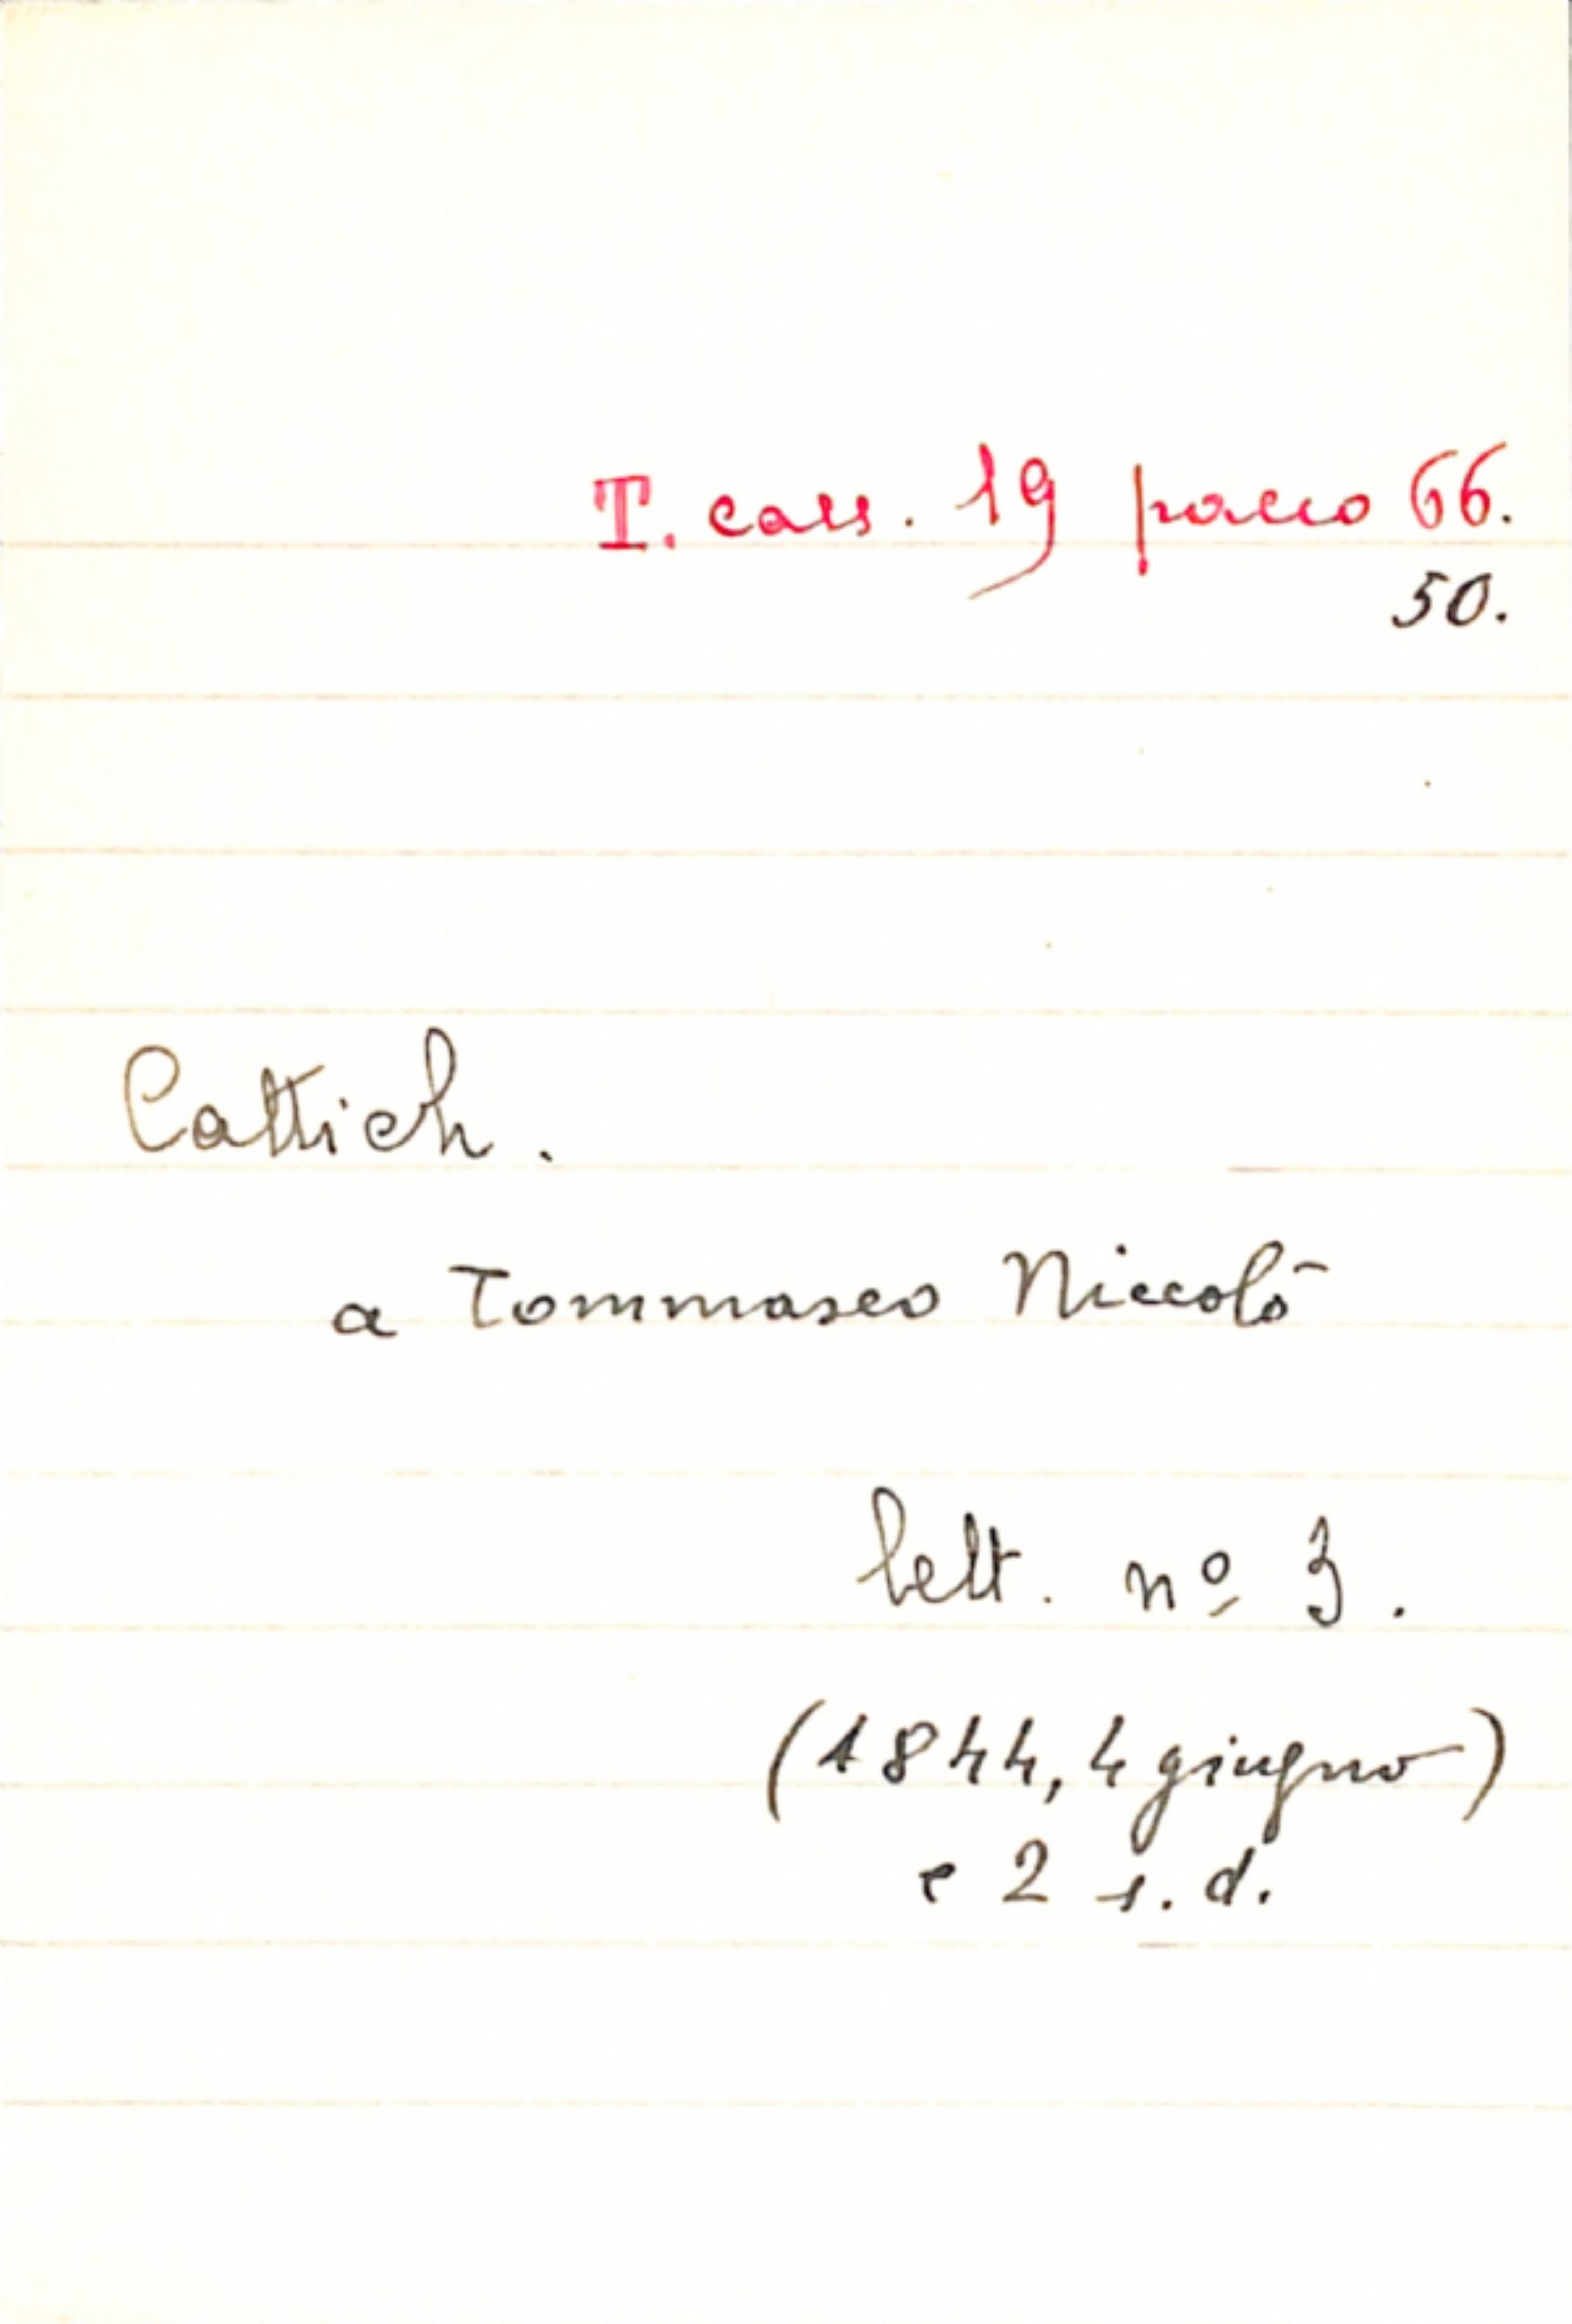 T. cass. 19 pacco 66.
50.
Cattich.
a Tommaseo Niccolò
lett. nº 3.
(1844, 4 giugno)
e 2 s.d.